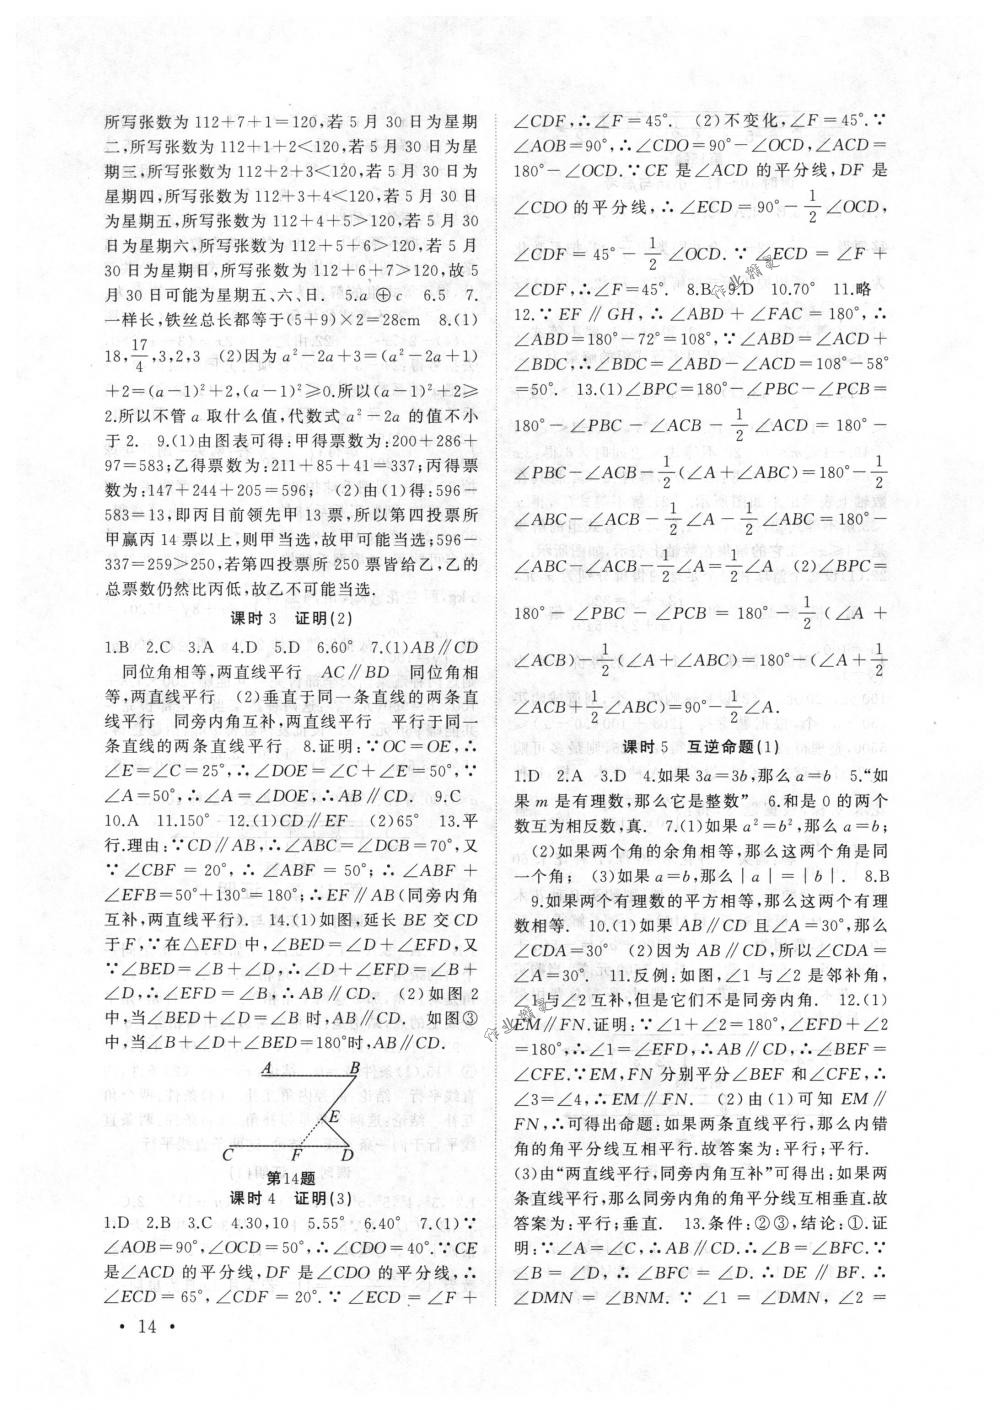 所写张数为 112+7+1=120,若 5 月 30 日为星期
二,所写张数为 112+1+2<120,若 5 月 30 日为星
期三,所写张数为 112+2+3<120,若 5 月 30 日为
星期四,所写张数为 112+3+4<120,若 5 月 30 日
为星期五,所写张数为 112+4+5>120,若 5 月 30
日为星期六,所写张数为 112+5+6>120,若 5 月
30 日为星期日,所写张数为 112+6+7>120,故 5
月 30 日可能为星期五、六、日. 5.a⊕c 6.5 7.
一样长,铁丝总长都等于(5+9)×2=28cm 8.(1)
18,17/4,3,2,3 (2)因为 a²-2a+3=(a²-2a+1)
+2=(a-1)²+2,(a-1)²≥0.所以(a-1)²+2≥
2.所以不管 a 取什么值,代数式 a²-2a 的值不小
于 2. 9.(1)由图表可得:甲得票数为:200+286+
97=583;乙得票数为:211+85+41=337;丙得票
数为:147+244+205=596; (2)由(1)得:596-
583=13,即丙目前领先甲 13 票,所以第四投票所
甲赢丙 14 票以上,则甲当选,故甲可能当选;596-
337=259>250,若第四投票所 250 票皆给乙,乙的
总票数仍然比丙低,故乙不可能当选.
课时 3 证明(2)
1.B 2.C 3.A 4.D 5.D 6.60° 7.(1)AB∥CD
同位角相等,两直线平行 AC∥BD 同位角相
等,两直线平行 (2)垂直于同一条直线的两条直
线平行 同旁内角互补,两直线平行 平行于同一
条直线的两条直线平行 8.证明:∵OC=OE,∴
∠E=∠C=25°,∴∠DOE=∠C+∠E=50°,∵
∠A=50°,∴∠A=∠DOE,∴AB∥CD. 9.C
10.A 11.150° 12.(1)CD∥EF (2)65° 13.平
行.理由:∵CD∥AB,∴∠ABC=∠DCB=70°,又
∵∠CBF=20°,∴∠ABF=50°;∴∠ABF+
∠EFB=50°+130°=180°;∴EF∥AB(同旁内角
互补,两直线平行). 14.(1)如图,延长 BE 交 CD
于 F,∵在△EFD 中,∠BED=∠D+∠EFD,又
∵∠BED=∠B+∠D,∴∠D+∠EFD=∠B+
∠D,∴∠EFD=∠B,∴AB∥CD. (2)如图 2
中,当∠BED+∠D=∠B 时,AB∥CD. 如图③
中,当∠B+∠D+∠BED=180°时,AB∥CD.
A B
E
C F D
第14题
课时 4 证明(3)
1.D 2.B 3.C 4.30,10 5.55° 6.40° 7.(1)∵
∠AOB=90°,∠OCD=50°,∴∠CDO=40°.∵CE
是∠ACD 的平分线,DF 是∠CDO 的平分线,∴
∠ECD=65°,∠CDF=20°.∵∠ECD=∠F+
• 14 •
∠CDF,∴∠F=45°. (2)不变化,∠F=45°.∵
∠AOB=90°,∴∠CDO=90°-∠OCD,∠ACD=
180°-∠OCD.∵CE 是∠ACD 的平分线,DF 是
∠CDO 的平分线,∴∠ECD=90°-1/2∠OCD,
∠CDF=45°-1/2∠OCD.∵∠ECD=∠F+
∠CDF,∴∠F=45°. 8.B 9.D 10.70° 11.略
12.∵EF∥GH,∴∠ABD+∠FAC=180°,∴
∠ABD=180°-72°=108°,∵∠ABD=∠ACD+
∠BDC,∴∠BDC=∠ABD-∠ACD=108°-58°
=50°. 13.(1)∠BPC=180°-∠PBC-∠PCB=
180°-∠PBC-∠ACB-1/2∠ACD=180°-
∠PBC-∠ACB-1/2(∠A+∠ABC)=180°-1/2
∠ABC-∠ACB-1/2∠A-1/2∠ABC=180°-
∠ABC-∠ACB-1/2∠A=1/2∠A (2)∠BPC=
180°-∠PBC-∠PCB=180°-1/2(∠A+
∠ACB)-1/2(∠A+∠ABC)=180°-(∠A+1/2
∠ACB+1/2∠ABC)=90°-1/2∠A.
课时 5 互逆命题(1)
1.D 2.A 3.D 4.如果 3a=3b,那么 a=b 5.“如
果 m 是有理数,那么它是整数” 6.和是 0 的两个
数互为相反数,真. 7.(1)如果 a²=b²,那么 a=b;
(2)如果两个角的余角相等,那么这两个角是同
一个角; (3)如果 a=b,那么|a|=|b|. 8.B
9.如果两个有理数的平方相等,那么这两个有理
数相等. 10.(1)如果 AB∥CD 且∠A=30°,那么
∠CDA=30° (2)因为 AB∥CD,所以∠CDA=
∠A=30°. 11.反例:如图,∠1 与∠2 是邻补角,
∠1与∠2互补,但是它们不是同旁内角. 12.(1)
EM∥FN.证明:∵∠1+∠2=180°,∠EFD+∠2
=180°,∴∠1=∠EFD,∴AB∥CD,∴∠BEF=
∠CFE.∵EM,FN 分别平分∠BEF 和∠CFE,∴
∠3=∠4,∴EM∥FN. (2)由(1)可知 EM∥
FN,∴可得出命题:如果两直线平行,那么内错
角的角平分线互相平行.故答案为:平行;平行.
(3)由“两直线平行,同旁内角互补”可得出:如果两
条直线平行,那么同旁内角的角平分线互相垂直.故
答案为:平行;垂直. 13.条件:②③,结论:①.证
明:∵∠A=∠C,∴AB∥CD.∴∠B=∠BFC.∵
∠B=∠D,∴∠BFC=∠D.∴DE∥BF.∴
∠DMN=∠BNM.∵∠1=∠DMN,∠2=